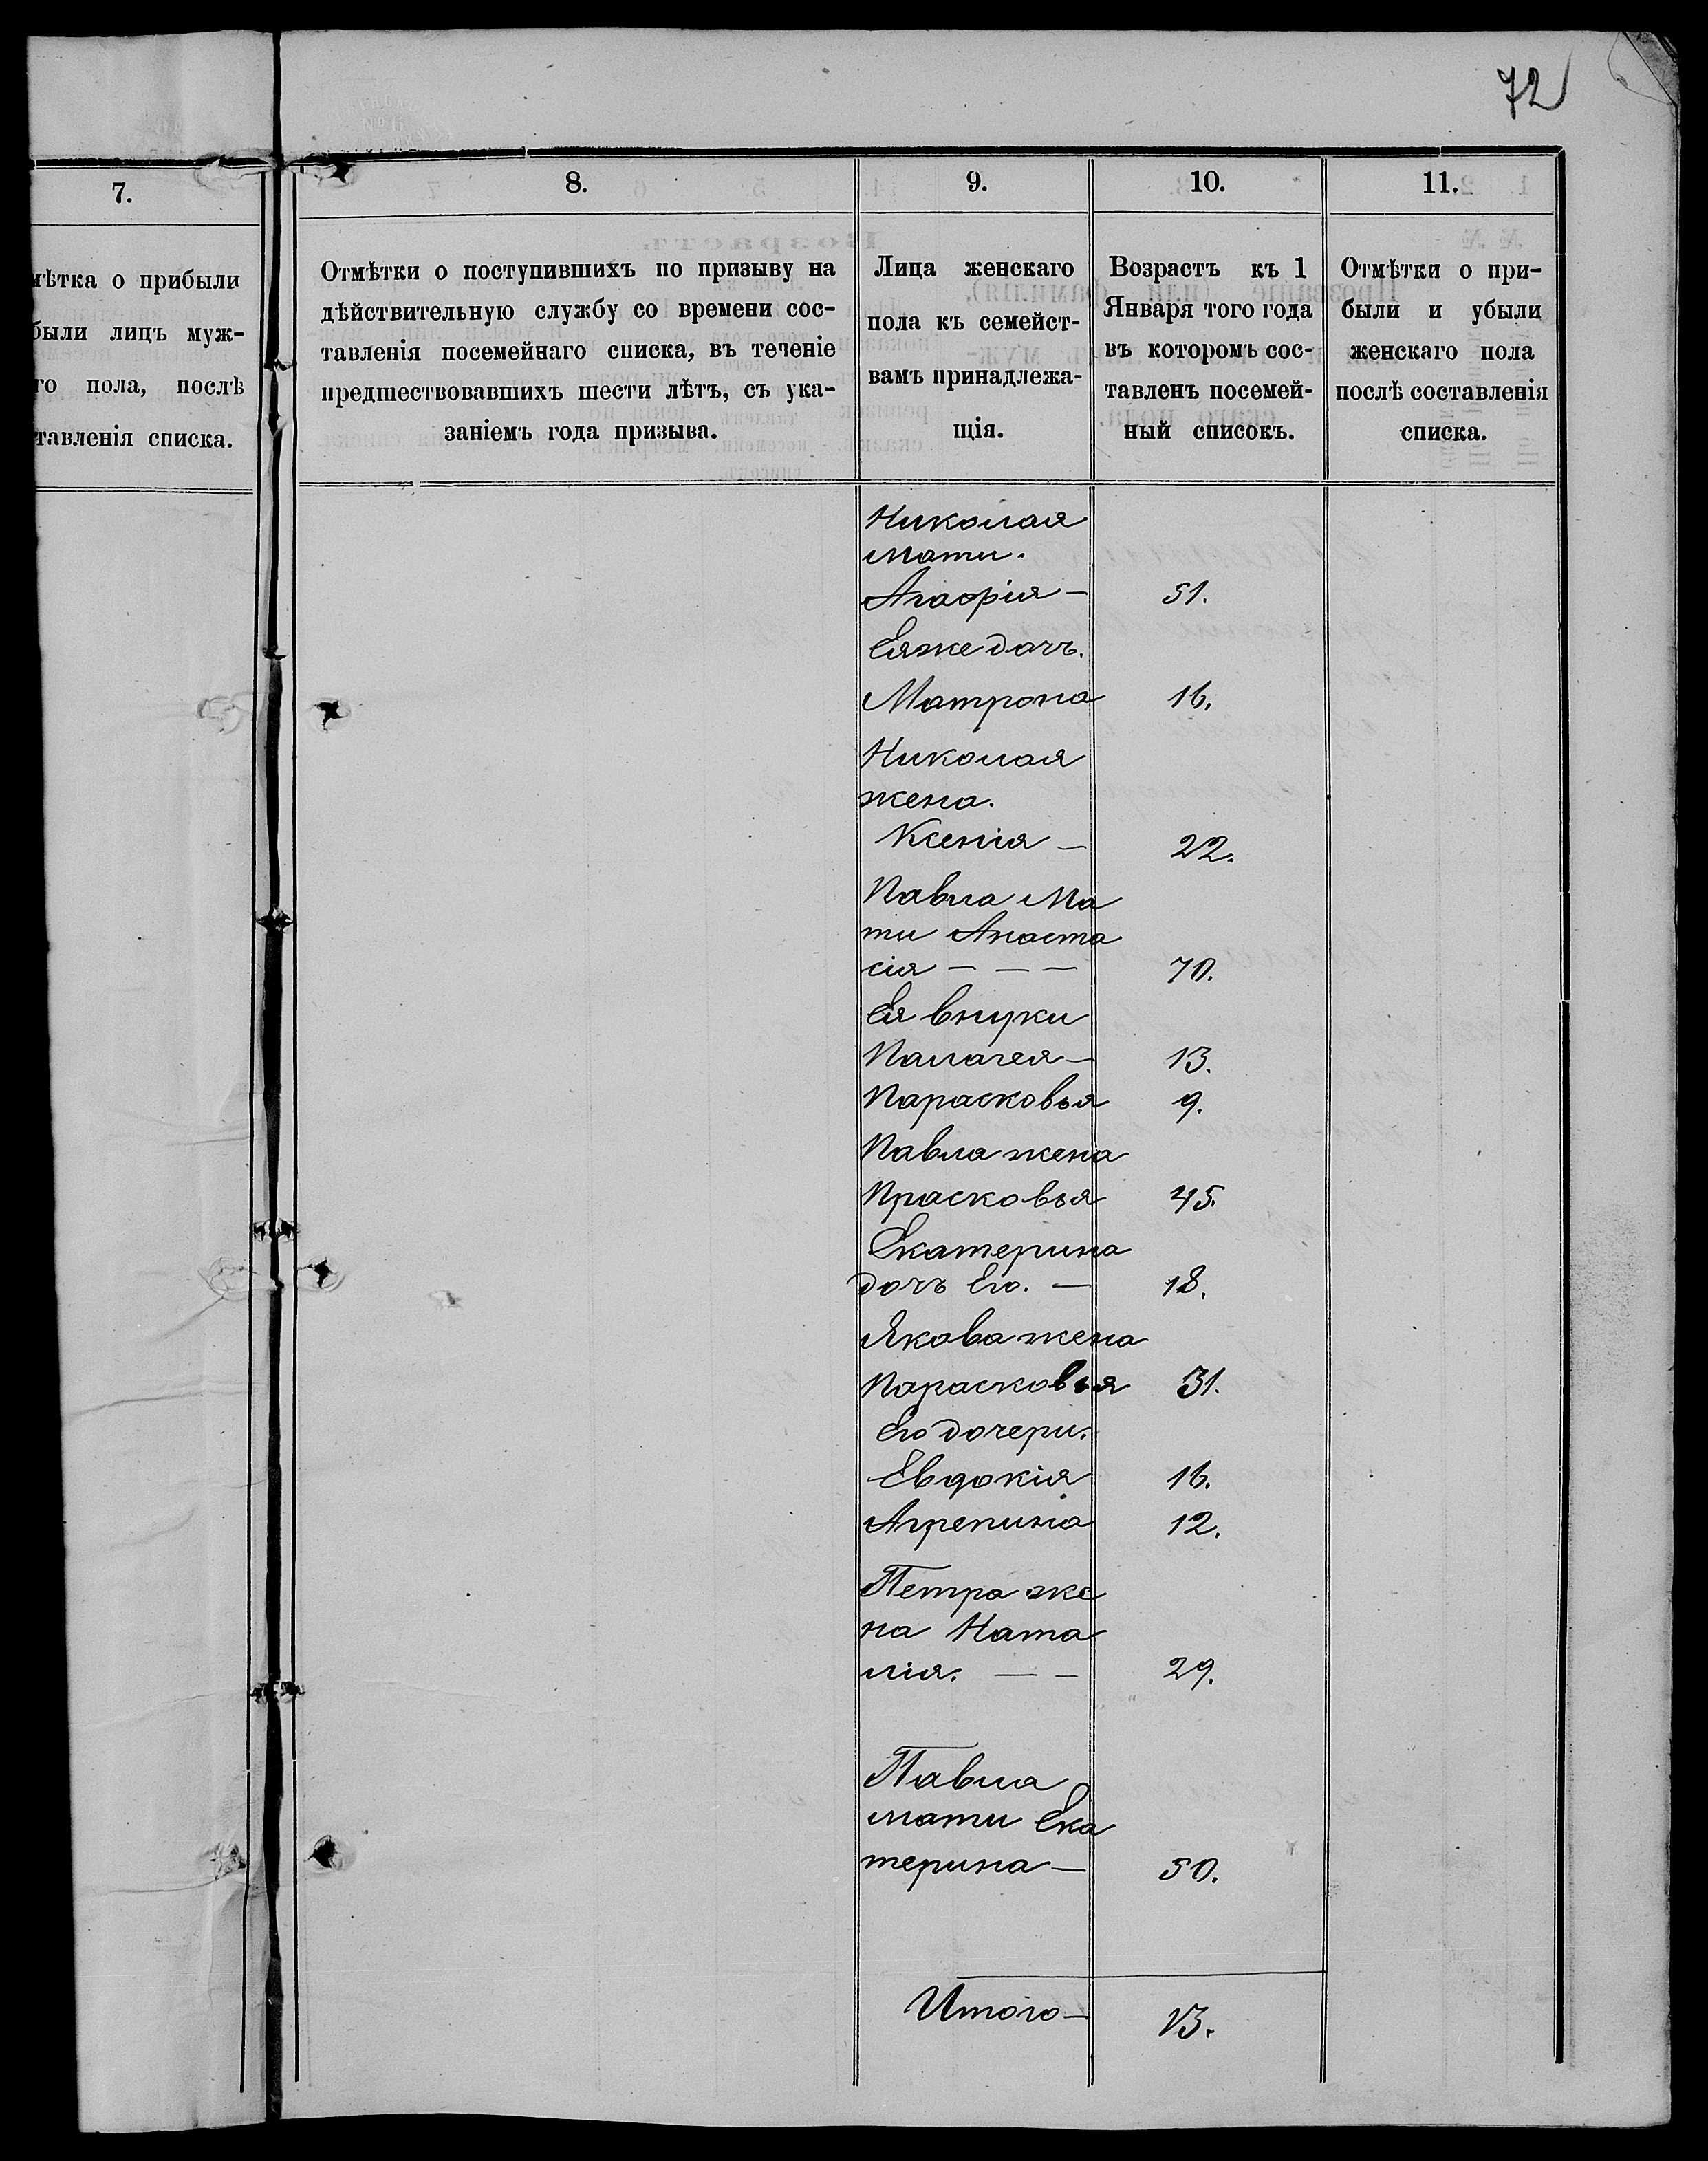 72
7.
8.
9.
10.
11.
мѣтка о прибыли
были лицъ муж-
го пола, послѣ
тавленія списка.
Отмѣтки о поступившихъ по призыву на
дѣйствительную службу со времени сос-
тавленія посемейнаго списка, въ теченіе
предшествовавшихъ шести лѣтъ, съ ука-
заніемъ года призыва.
Лица женскаго
пола къ семейст-
вамъ принадлежа-
щія.
Возрастъ къ 1
Января того года
въ которомъ сос-
тавленъ посемей-
ный списокъ.
Отмѣтки о при-
были и убыли
женскаго пола
послѣ составленія
списка.
Николая
мати.
Агафія — 51.
Еяже дочь.
Матрона 16.
Николая
жена.
Ксенія — 22.
Павла Ма
ти Анаста
сія — — — 70.
Ея внуки
Палагея — 13.
Парасковья 9.
Павла жена
Прасковья 45.
Екатерина
дочь Его. — 18.
Якова жена
Парасковья 31.
Его дочери.
Евдокія 16.
Агрепина 12.
Петра же
на Ната
лія. — — 29.
Павла
мати Ека
терина — 50.
Итого — 13.